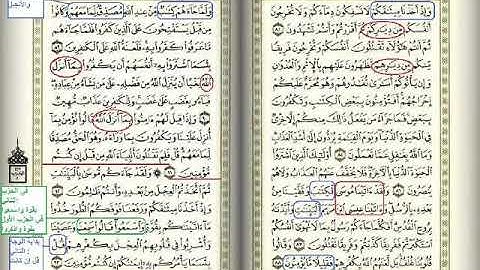 وَإِذْ أَخَذْنَا مِيثَٰقَكُمْ لَا تَسْفِكُونَ دِمَآءَكُمْ وَلَا تُخْرِجُونَ
أَنفُسَكُم مِّن دِيَٰرِكُمْ ثُمَّ أَقْرَرْتُمْ وَأَنتُمْ تَشْهَدُونَ ٨٤ ثُمَّ أَنتُمْ
هَٰٓؤُلَآءِ تَقْتُلُونَ أَنفُسَكُمْ وَتُخْرِجُونَ فَرِيقًا مِّنكُم
مِّن دِيَٰرِهِمْ تَظَٰهَرُونَ عَلَيْهِم بِٱلْإِثْمِ وَٱلْعُدْوَٰنِ
وَإِن يَأْتُوكُمْ أُسَٰرَىٰ تُفَٰدُوهُمْ وَهُوَ مُحَرَّمٌ عَلَيْكُمْ
إِخْرَاجُهُمْ أَفَتُؤْمِنُونَ بِبَعْضِ ٱلْكِتَٰبِ وَتَكْفُرُونَ
بِبَعْضٍ فَمَا جَزَآءُ مَن يَفْعَلُ ذَٰلِكَ مِنكُمْ إِلَّا خِزْىٌ
فِى ٱلْحَيَوٰةِ ٱلدُّنْيَا وَيَوْمَ ٱلْقِيَٰمَةِ يُرَدُّونَ إِلَىٰٓ أَشَدِّ ٱلْعَذَابِ
وَمَا ٱللَّهُ بِغَٰفِلٍ عَمَّا تَعْمَلُونَ ٨٥ أُو۟لَٰٓئِكَ ٱلَّذِينَ ٱشْتَرَوُا۟
ٱلْحَيَوٰةَ ٱلدُّنْيَا بِٱلْءَاخِرَةِ فَلَا يُخَفَّفُ عَنْهُمُ ٱلْعَذَابُ
وَلَا هُمْ يُنصَرُونَ ٨٦ وَلَقَدْ ءَاتَيْنَا مُوسَى ٱلْكِتَٰبَ وَقَفَّيْنَا مِنۢ
بَعْدِهِۦ بِٱلرُّسُلِ وَءَاتَيْنَا عِيسَى ٱبْنَ مَرْيَمَ ٱلْبَيِّنَٰتِ وَأَيَّدْنَٰهُ
بِرُوحِ ٱلْقُدُسِ أَفَكُلَّمَا جَآءَكُمْ رَسُولٌۢ بِمَا لَا تَهْوَىٰٓ
أَنفُسُكُمُ ٱسْتَكْبَرْتُمْ فَفَرِيقًا كَذَّبْتُمْ وَفَرِيقًا تَقْتُلُونَ ٨٧
وَقَالُوا۟ قُلُوبُنَا غُلْفٌۢ بَل لَّعَنَهُمُ ٱللَّهُ بِكُفْرِهِمْ فَقَلِيلًا مَّا يُؤْمِنُونَ ٨٨
وَلَمَّا جَآءَهُمْ كِتَٰبٌ مِّنْ عِندِ ٱللَّهِ مُصَدِّقٌ لِّمَا مَعَهُمْ وَكَانُوا۟
مِن قَبْلُ يَسْتَفْتِحُونَ عَلَى ٱلَّذِينَ كَفَرُوا۟ فَلَمَّا جَآءَهُم
مَّا عَرَفُوا۟ كَفَرُوا۟ بِهِۦ فَلَعْنَةُ ٱللَّهِ عَلَى ٱلْكَٰفِرِينَ ٨٩
بِئْسَمَا ٱشْتَرَوْا۟ بِهِۦٓ أَنفُسَهُمْ أَن يَكْفُرُوا۟ بِمَآ أَنزَلَ
ٱللَّهُ بَغْيًا أَن يُنَزِّلَ ٱللَّهُ مِن فَضْلِهِۦ عَلَىٰ مَن يَشَآءُ مِنْ عِبَادِهِۦ
فَبَآءُو بِغَضَبٍ عَلَىٰ غَضَبٍ وَلِلْكَٰفِرِينَ عَذَابٌ مُّهِينٌ
٩٠ وَإِذَا قِيلَ لَهُمْ ءَامِنُوا۟ بِمَآ أَنزَلَ ٱللَّهُ قَالُوا۟ نُؤْمِنُ بِمَآ
أُنزِلَ عَلَيْنَا وَيَكْفُرُونَ بِمَا وَرَآءَهُۥ وَهُوَ ٱلْحَقُّ مُصَدِّقًا
لِّمَا مَعَهُمْ قُلْ فَلِمَ تَقْتُلُونَ أَنۢبِيَآءَ ٱللَّهِ مِن قَبْلُ إِن كُنتُم
مُّؤْمِنِينَ ٩١ وَلَقَدْ جَآءَكُم مُّوسَىٰ بِٱلْبَيِّنَٰتِ
ثُمَّ ٱتَّخَذْتُمُ ٱلْعِجْلَ مِنۢ بَعْدِهِۦ وَأَنتُمْ ظَٰلِمُونَ ٩٢
وَإِذْ أَخَذْنَا مِيثَٰقَكُمْ وَرَفَعْنَا فَوْقَكُمُ ٱلطُّورَ خُذُوا۟
مَآ ءَاتَيْنَٰكُم بِقُوَّةٍ وَٱسْمَعُوا۟ قَالُوا۟ سَمِعْنَا وَعَصَيْنَا
وَأُشْرِبُوا۟ فِى قُلُوبِهِمُ ٱلْعِجْلَ بِكُفْرِهِمْ قُلْ
بِئْسَمَا يَأْمُرُكُم بِهِۦٓ إِيمَٰنُكُمْ إِن كُنتُم مُّؤْمِنِينَ ٩٣
والانجيل
في الحزب
الثاني
بقوة واسمعوا
في الحزب الأول
بقوة واذكروا
بداية الوجه
الثاني
قل إن كانت